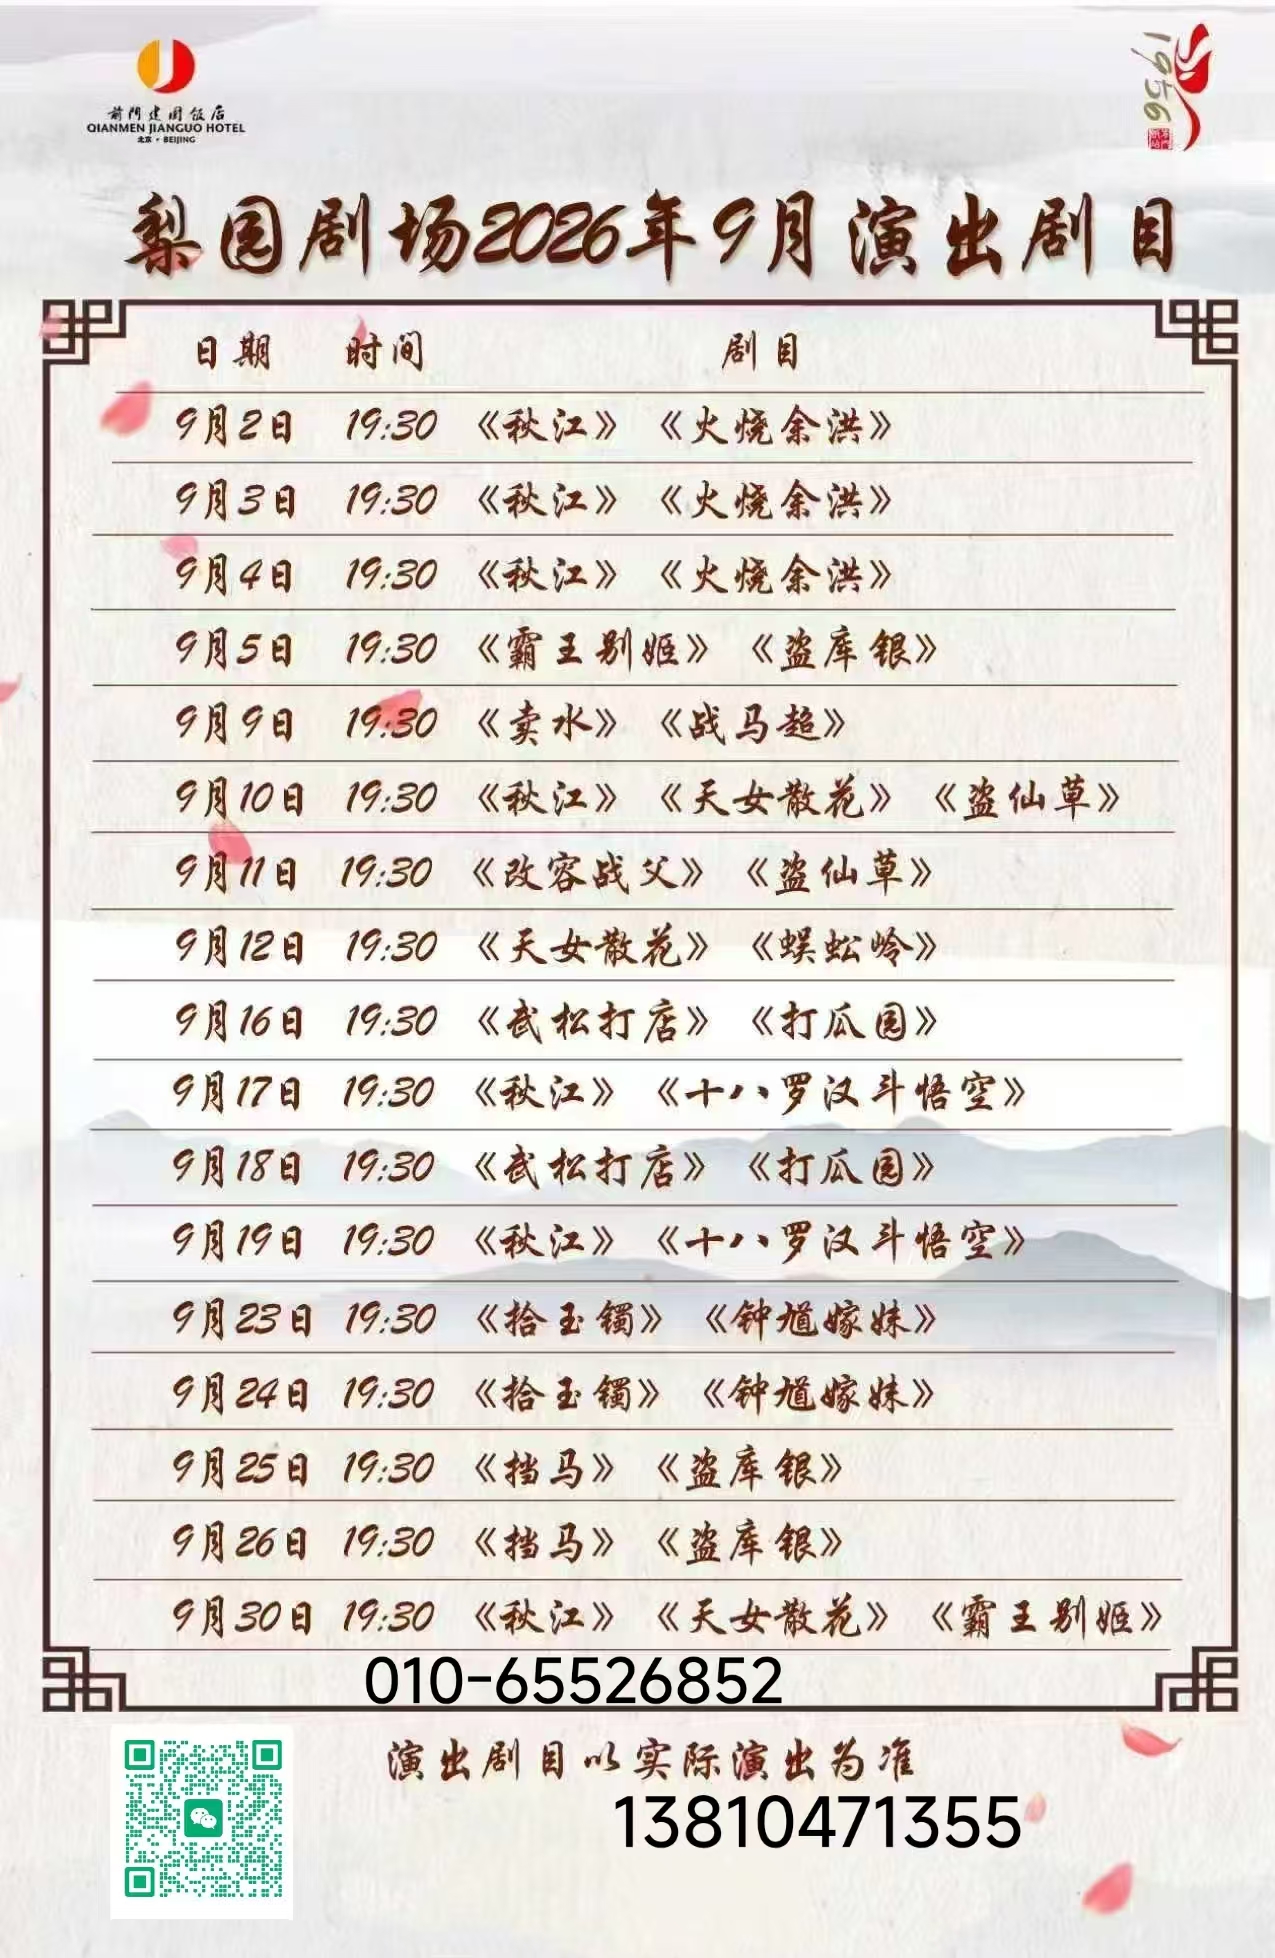 前門建国饭店
QIANMEN JIANGUO HOTEL
北京·BEIJING
1956
梨园剧场2026年9月演出剧目
日期 时间 剧目
9月2日 19:30 《秋江》 《火烧余洪》
9月3日 19:30 《秋江》 《火烧余洪》
9月4日 19:30 《秋江》 《火烧余洪》
9月5日 19:30 《霸王别姬》 《盗库银》
9月9日 19:30 《卖水》 《战马超》
9月10日 19:30 《秋江》 《天女散花》 《盗仙草》
9月11日 19:30 《改容战父》 《盗仙草》
9月12日 19:30 《天女散花》 《蜈蚣岭》
9月16日 19:30 《武松打店》 《打瓜园》
9月17日 19:30 《秋江》 《十八罗汉斗悟空》
9月18日 19:30 《武松打店》 《打瓜园》
9月19日 19:30 《秋江》 《十八罗汉斗悟空》
9月23日 19:30 《拾玉镯》 《钟馗嫁妹》
9月24日 19:30 《拾玉镯》 《钟馗嫁妹》
9月25日 19:30 《挡马》 《盗库银》
9月26日 19:30 《挡马》 《盗库银》
9月30日 19:30 《秋江》 《天女散花》 《霸王别姬》
010-65526852
演出剧目以实际演出为准
13810471355